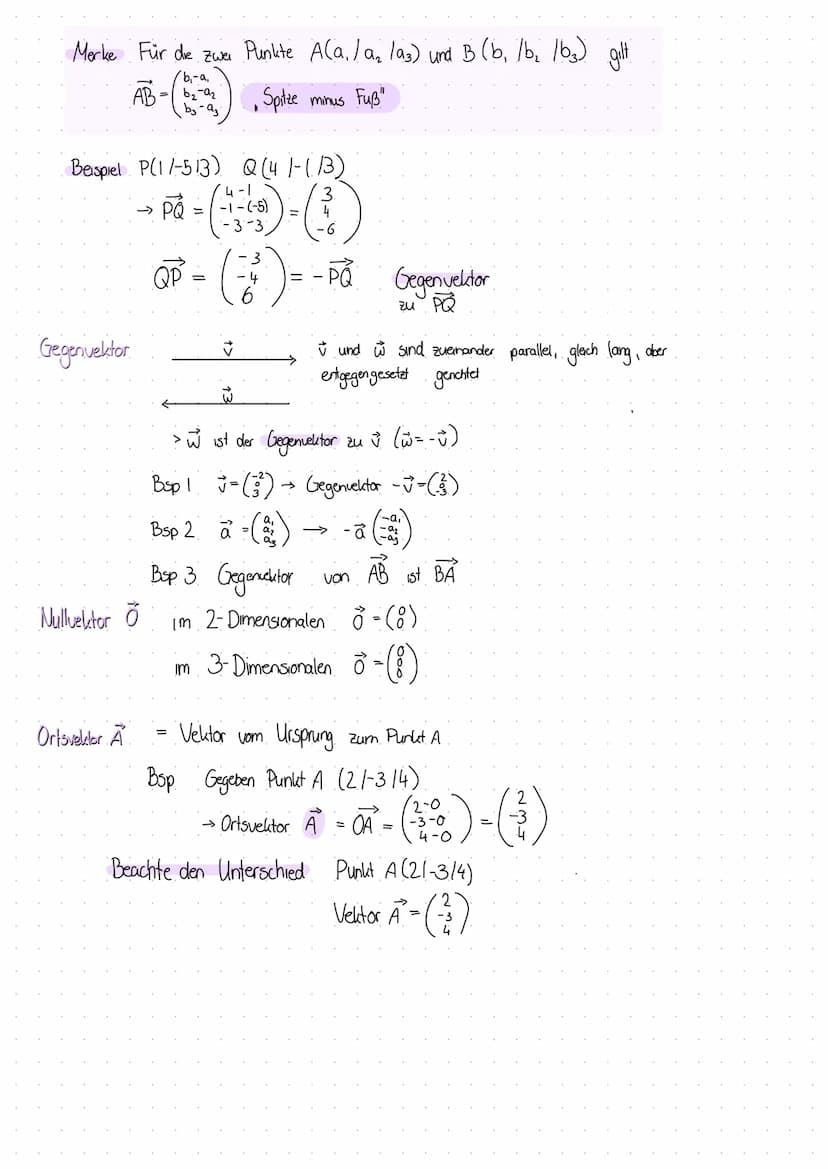 Merke Für die zwei Punkte A(a₁/a₂/a₃) und B(b₁/b₂/b₃) gilt
AB⃗ = (b₁-a₁ b₂-a₂ b₃-a₃) „Spitze minus Fuß"
Beispiel P(1/-5/3) Q(4/-1/3)
→ PQ⃗ = (4-1 -1-(-5) -3-3) = (3 4 -6)
QP⃗ = (-3 -4 6) = -PQ⃗ Gegenvektor
zu PQ⃗
Gegenvektor v⃗ v⃗ und w⃗ sind zueinander parallel, gleich lang, aber
entgegengesetzt gerichtet
w⃗
> w⃗ ist der Gegenvektor zu v⃗ (w⃗ = -v⃗)
Bsp 1 v⃗ = (-2 0 3) → Gegenvektor -v⃗ = (2 0 -3)
Bsp 2 a⃗ = (a₁ a₂ a₃) → -a⃗ (-a₁ -a₂ -a₃)
Bsp 3 Gegenvektor von AB⃗ ist BA⃗
Nullvektor O⃗ im 2-Dimensionalen o⃗ = (0 0)
im 3-Dimensionalen o⃗ = (0 0 0)
Ortsvektor A⃗ = Vektor vom Ursprung zum Punkt A
Bsp Gegeben Punkt A (2/-3/4)
→ Ortsvektor A⃗ = OA⃗ = (2-0 -3-0 4-0) = (2 -3 4)
Beachte den Unterschied Punkt A(2/-3/4)
Vektor A⃗ = (2 -3 4)